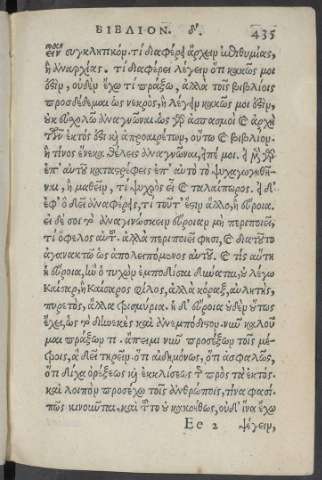 ΒΙΒΛΙΟΝ. δ'. 435
εῖναι συγκλητικόν. τί διαφέρει ἄρχειν ἐπιθυμίας,
ἢ ἀναρχίας. τί διαφέρει λέγειν ὅτι κακῶς μοι
ἐστίν, οὐδὲν ἔχω τί πράξω, ἀλλὰ τοῖς βιβλίοις
προσδέδεμαι ὡς νεκρός, ἢ λέγειν κακῶς μοι ἐστίν,
οὐκ εὐσχολῶ ἀναγνῶναι. ὡς γὰρ ἀσπασμοὶ καὶ ἀρχὴ
τῶν ἐκτός ἐστι καὶ ἀπροαιρέτων, οὕτω καὶ βιβλίον.
ἢ τίνος ἕνεκα θέλεις ἀναγνῶναι, εἰπέ μοι. εἰ μὲν γὰρ
ἐπ' αὐτὸ καταστρέφεις ἐπ' αὐτὸ τὸ ψυχαγωγηθῆ-
ναι, ἢ μαθεῖν, τὶ ψυχρὸς εἶ καὶ ταλαίπωρος. εἰ δ'
ἐφ' ὃ δεῖ ἀναφέρεις, τί τοῦτ' ἐστιν ἄλλο, ἢ εὔροια.
εἰ δέ σοι τὸ ἀναγινώσκειν εὔροιαν μὴ περιποιεῖ,
τί ὄφελος αὐτοῦ. ἀλλὰ περιποιεῖ φησι, καὶ διατοῦτο
ἀγανακτῶ ὡς ἀπολειπόμενος αὐτοῦ. καὶ τίς αὕτη
ἡ εὔροια, ἣν ὁ τυχὼν ἐμποδίσαι δύναται, οὐ λέγω
Καῖσαρ, ἢ Καίσαρος φίλος, ἀλλὰ κόραξ, αὐλητής,
πυρετός, ἄλλα τρισμύρια. ἡ δ' εὔροια οὐδὲν οὕτως
ἔχει, ὡς τὸ διηνεκὲς καὶ ἀνεμπόδιστον. νῦν καλοῦ
μαι πράξων τι. ἄπειμι νῦν προσέξων τοῖς μέ-
τροις, ἃ δεῖ τηρεῖν. ὅτι αἰδημόνως, ὅτι ἀσφαλῶς,
ὅτι δίχα ὀρέξεως καὶ ἐκκλίσεως τῆς πρὸς τὰ ἐκτός.
καὶ λοιπὸν προσέχω τοῖς ἀνθρώποις, τίνα φασί.
πῶς κινοῦνται. καὶ τοῦτο οὐ κακοήθως, οὐδ' ἵνα ἔχω
Ee 2 ψέγειν,